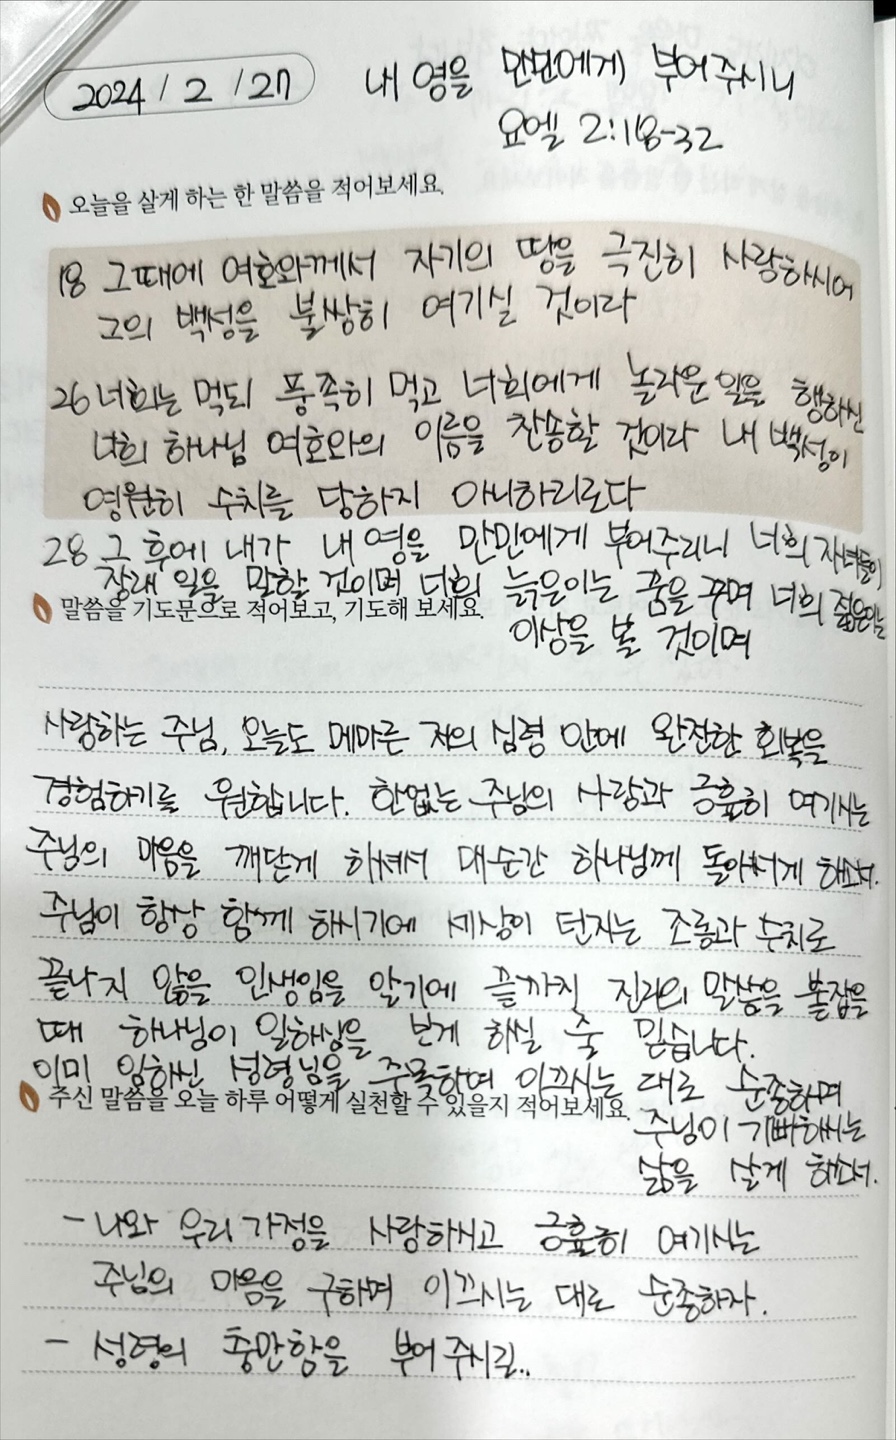 2024 / 2 / 27
내 영을 만민에게 부어 주시니
요엘 2:18-32
오늘을 살게 하는 한 말씀을 적어보세요.
18 그때에 여호와께서 자기의 땅을 극진히 사랑하시어
그의 백성을 불쌍히 여기실 것이라
26 너희는 먹되 풍족히 먹고 너희에게 놀라운 일을 행하신
너희 하나님 여호와의 이름을 찬송할 것이라 내 백성이
영원히 수치를 당하지 아니하리로다
28 그 후에 내가 내 영을 만민에게 부어주리니 너희 자녀들이
장래 일을 말할 것이며 너희 늙은이는 꿈을 꾸며 너희 젊은이는
이상을 볼 것이며
말씀을 기도문으로 적어보고, 기도해 보세요.
사랑하는 주님, 오늘도 메마른 저의 심령 안에 완전한 회복을
경험하기를 원합니다. 한없는 주님의 사랑과 긍휼히 여기시는
주님의 마음을 깨닫게 하셔서 매순간 하나님께 돌아서게 하소서.
주님이 항상 함께 하시기에 세상이 던지는 조롱과 수치로
끝나지 않을 인생임을 알기에 끝까지 진리의 말씀을 붙잡을
때 하나님이 일하심을 보게 하실 줄 믿습니다.
이미 임하신 성령님을 주목하며 이끄시는 대로 순종하며
주님이 기뻐하시는
삶을 살게 하소서.
주신 말씀을 오늘 하루 어떻게 실천할 수 있을지 적어보세요.
- 나와 우리 가정을 사랑하시고 긍휼히 여기시는
주님의 마음을 구하며 이끄시는 대로 순종하자.
- 성령의 충만함을 부어 주시길..